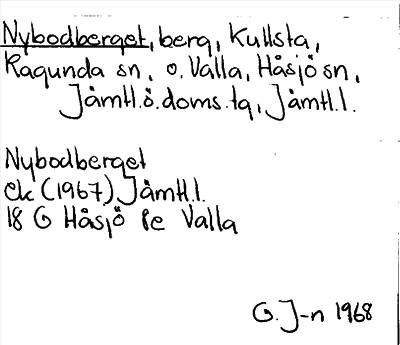 Nybodberget, berg, Kullsta,
Ragunda sn, o. Valla, Håsjö sn,
Jämtl.ö.doms.tg, Jämtl.l.
Nybodberget
ek (1967) Jämtl.l.
18 G Håsjö 8e Valla
G. J-n 1968